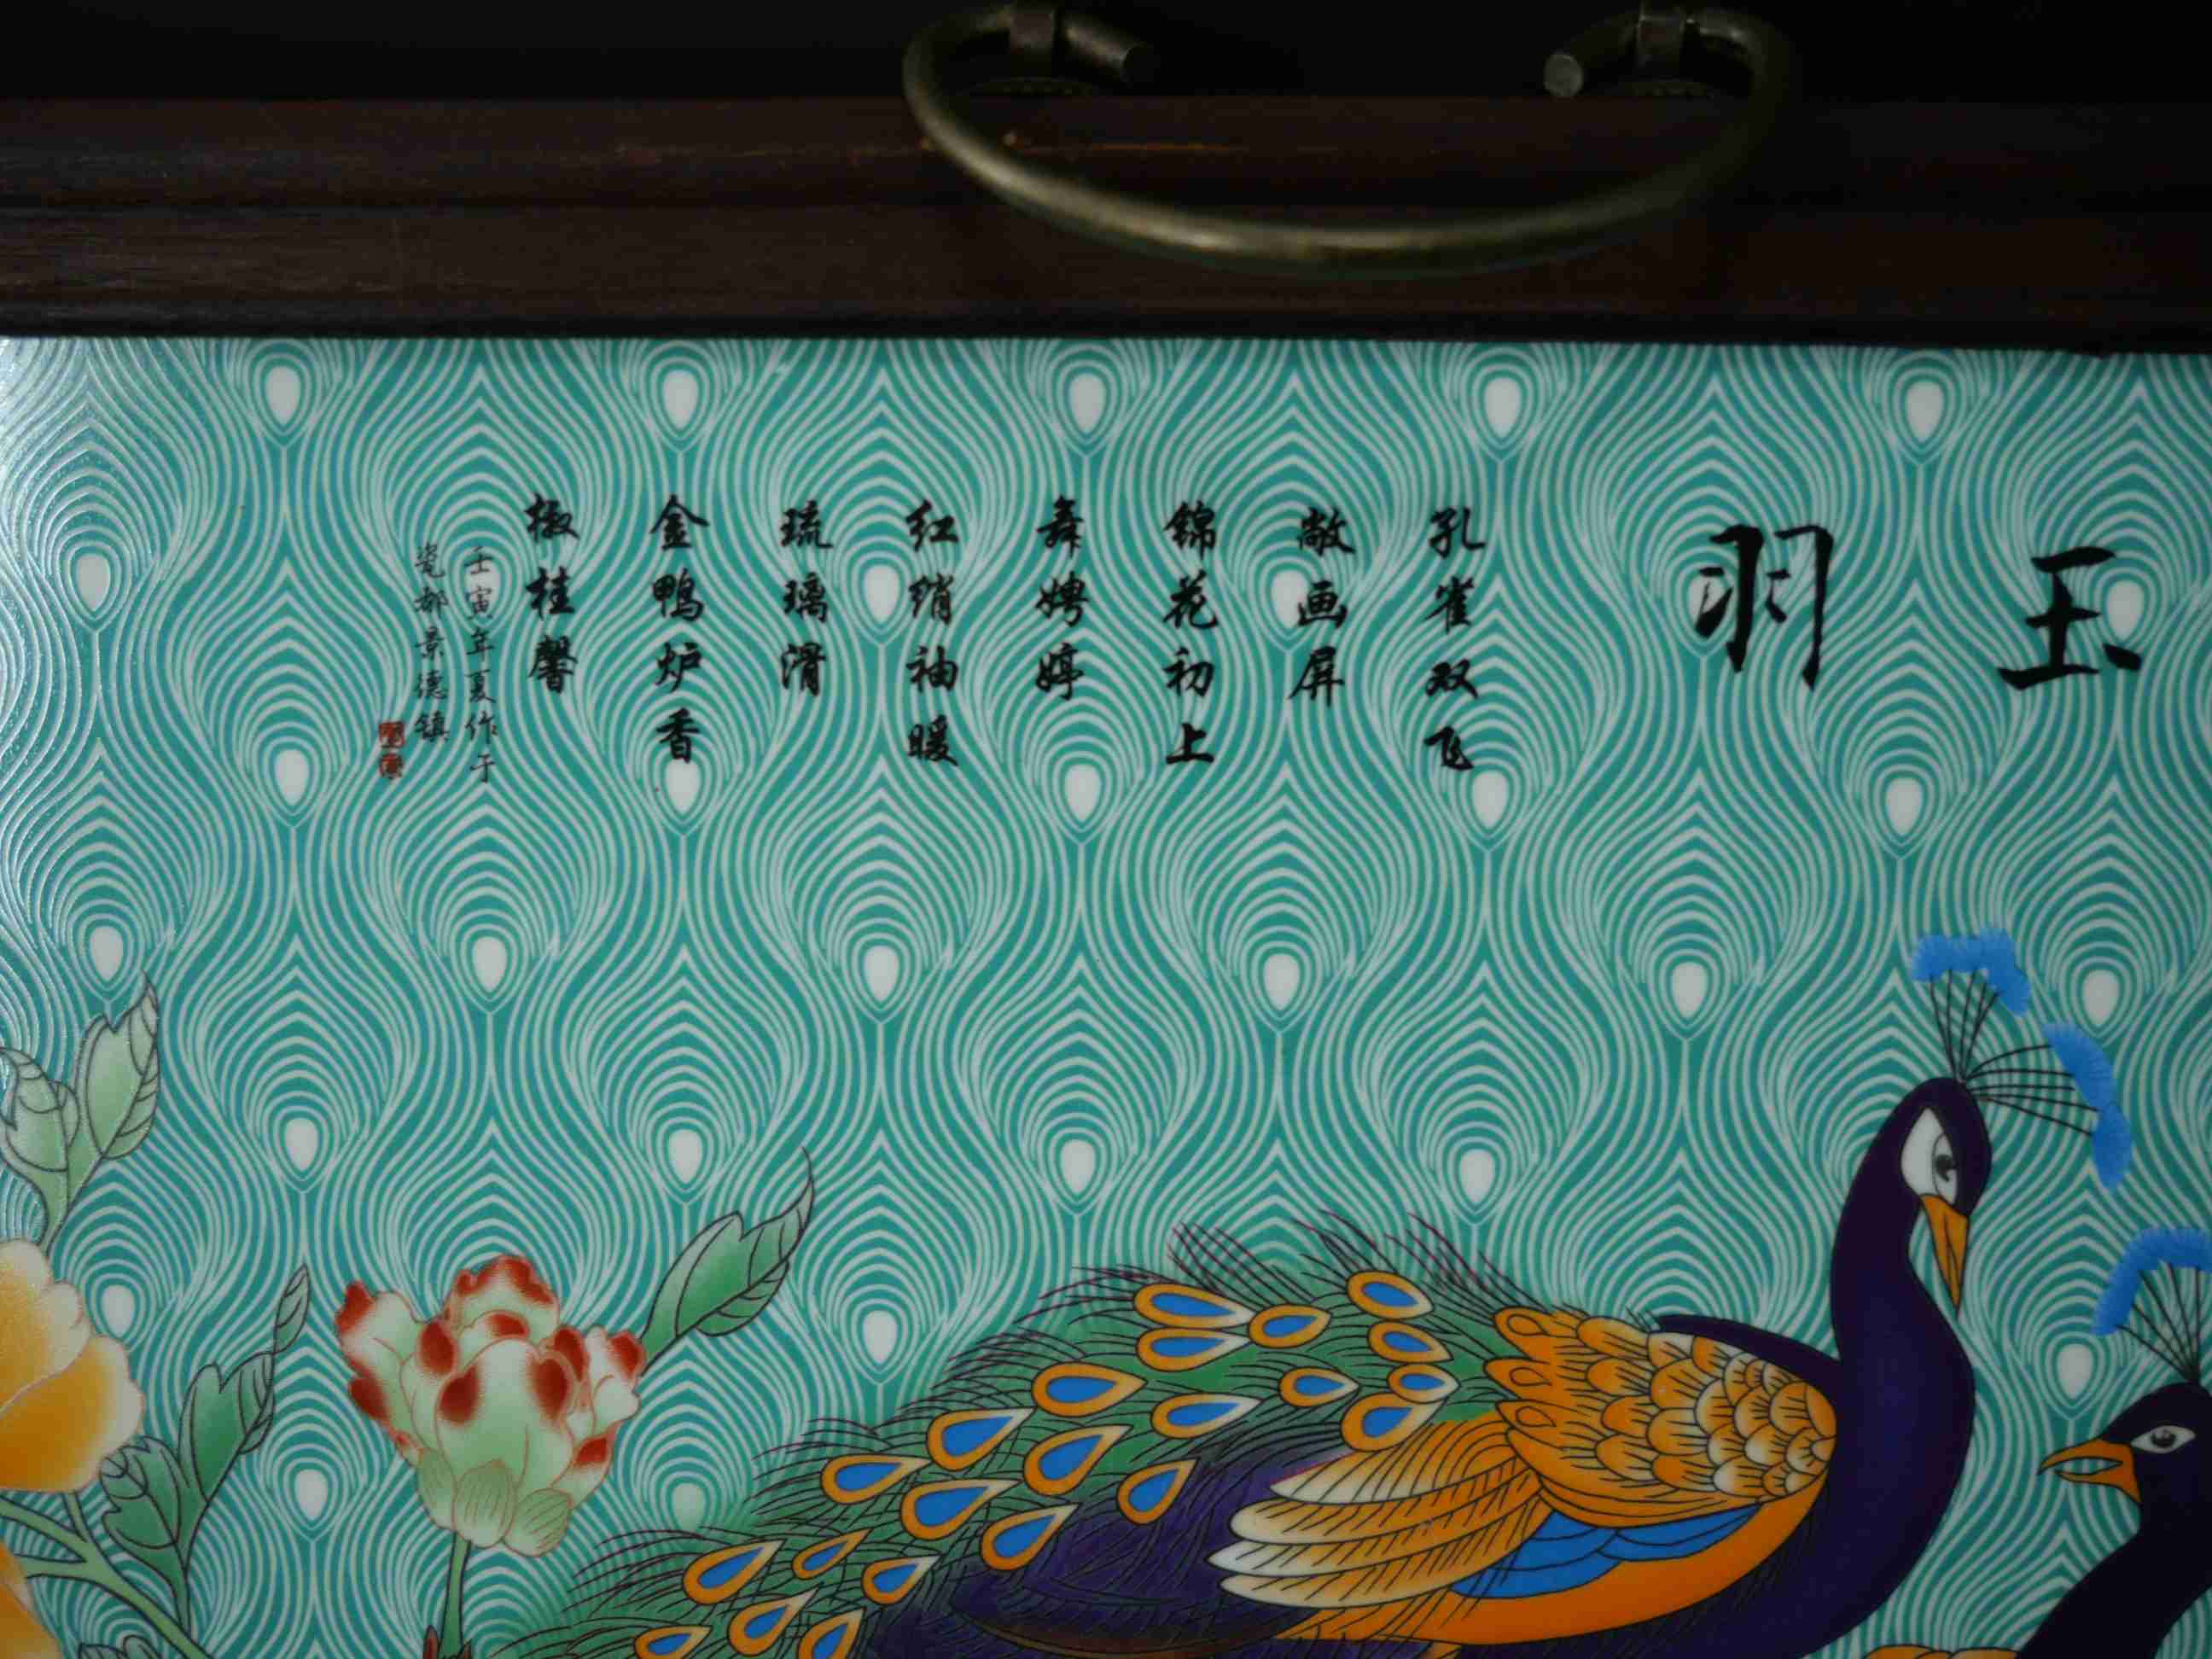 玉羽
孔雀双飞
敞画屏
锦花初上
舞娉婷
红绡袖暖
琉璃滑
金鸭炉香
椒桂馨
壬寅年夏作于
瓷都景德镇